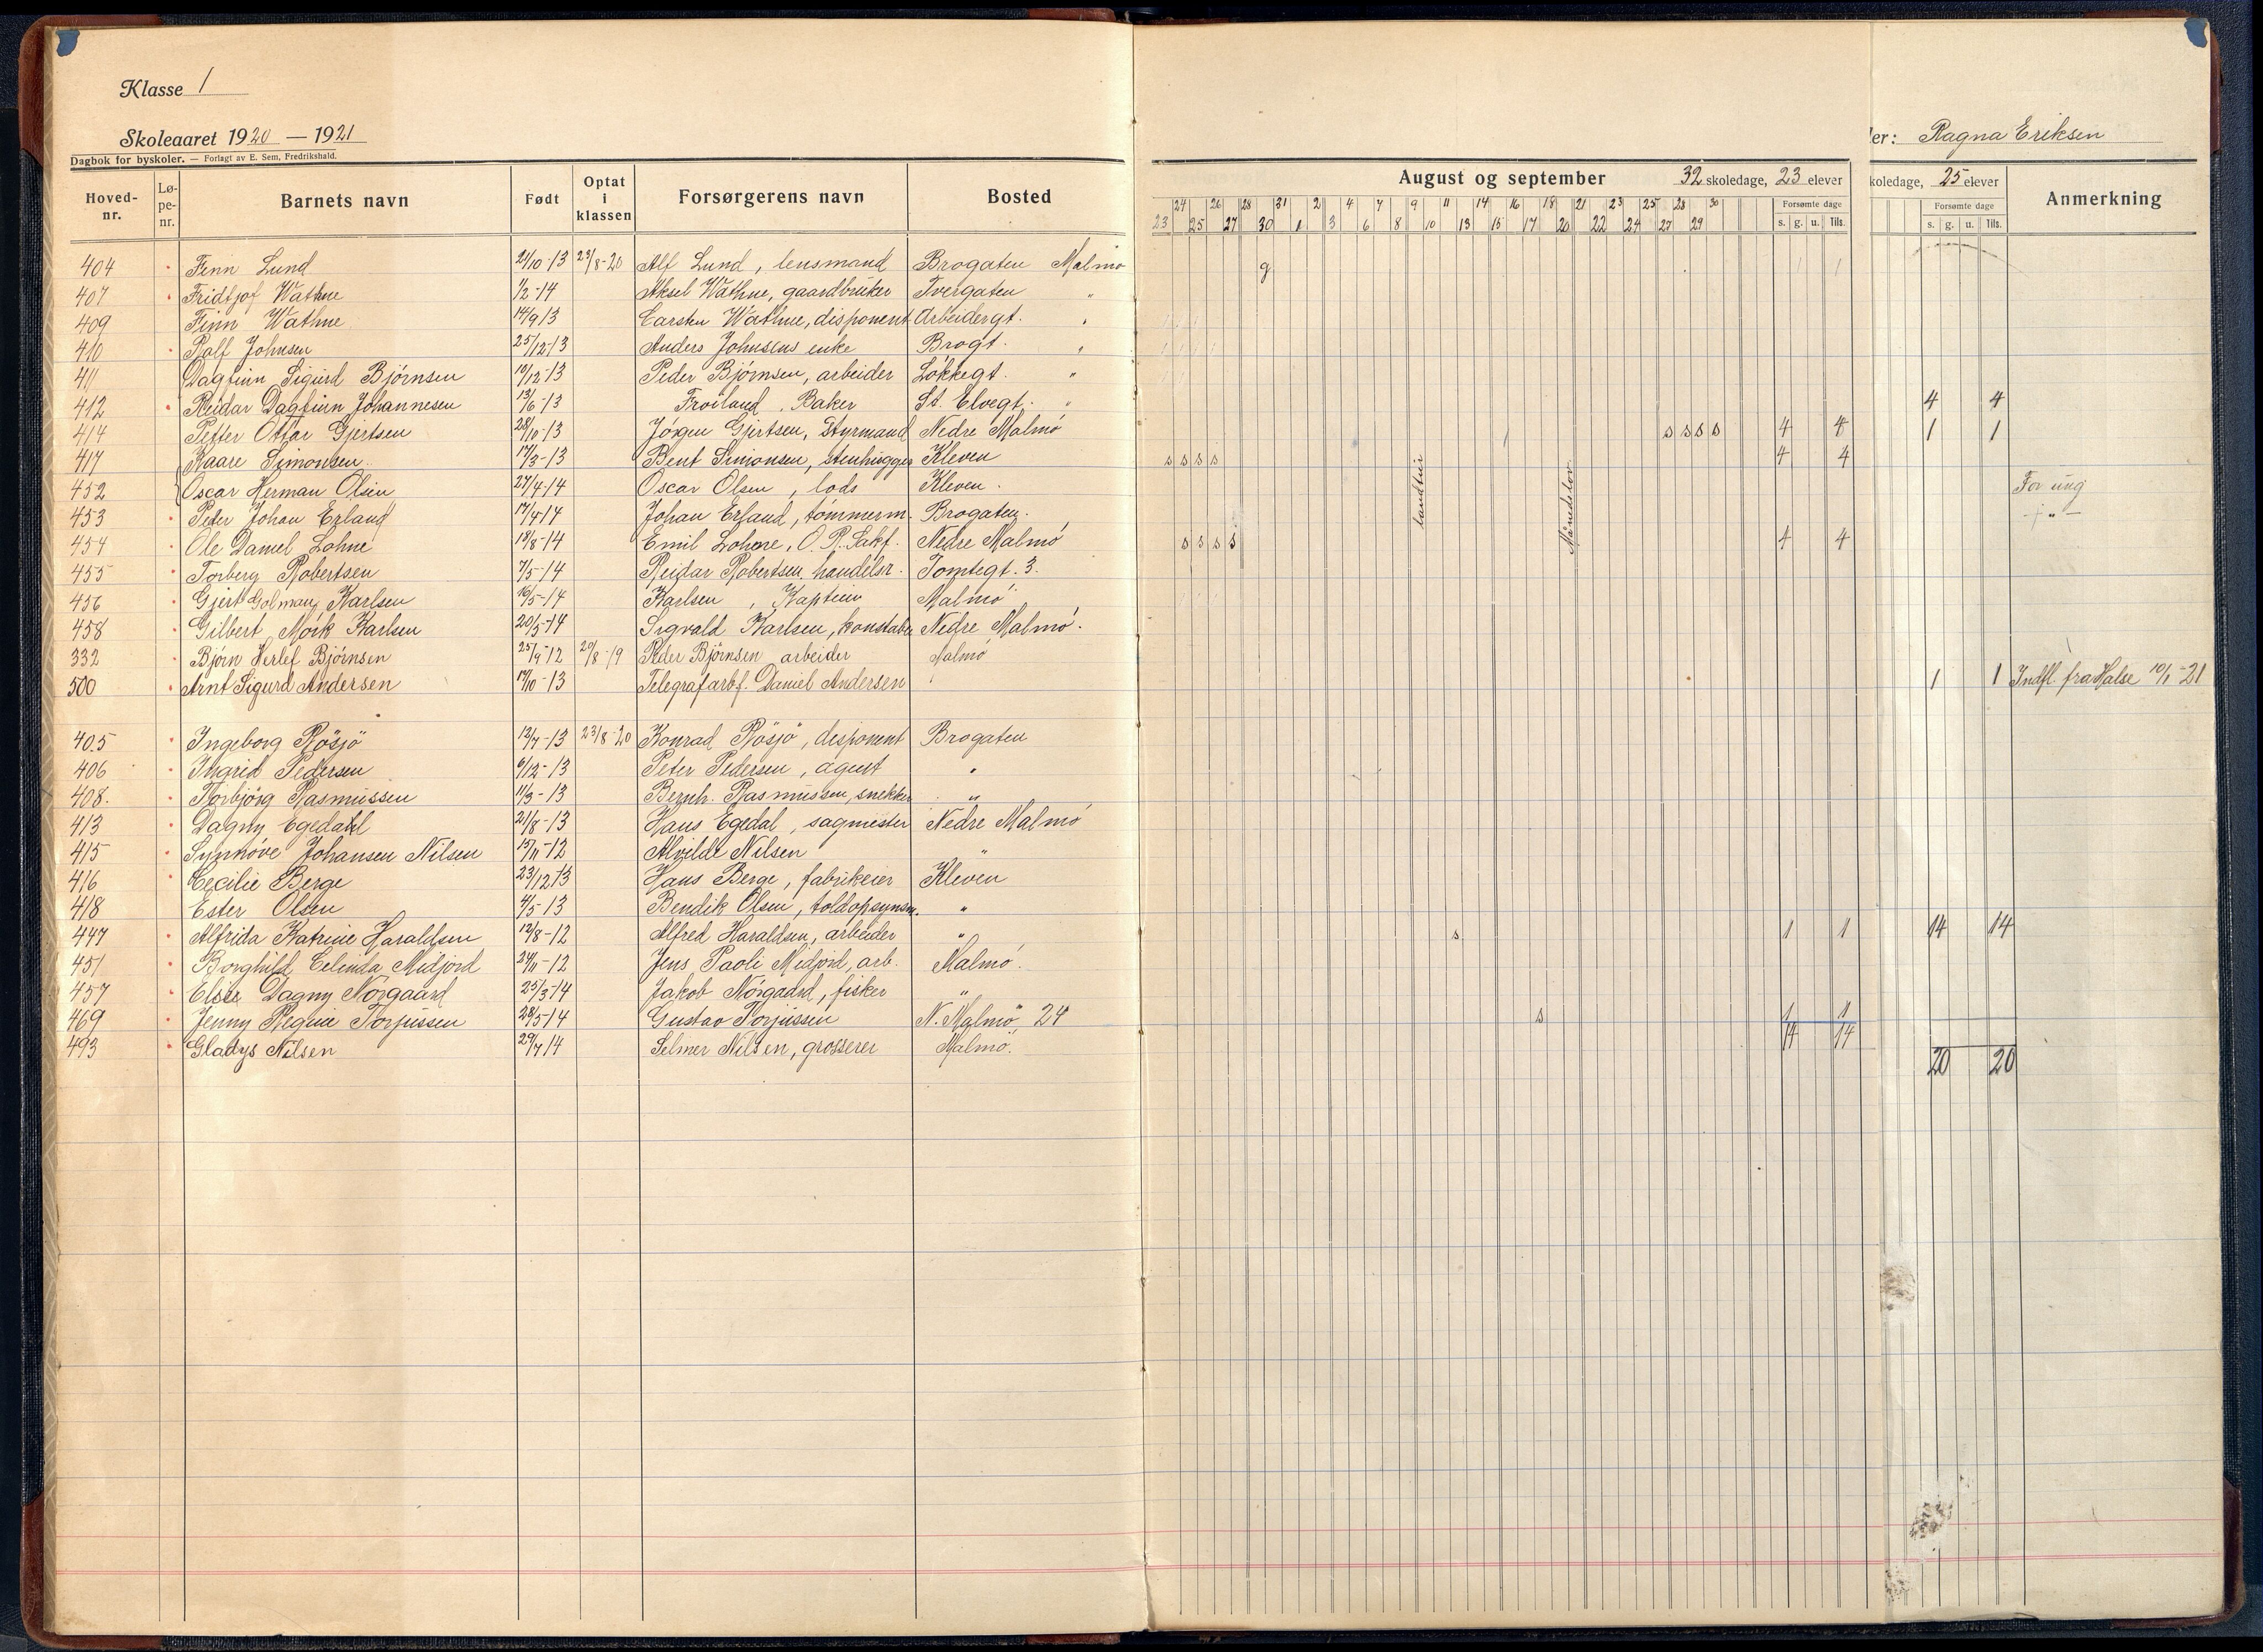 Klasse 1
Skoleaaret 1920 — 1921
Dagbok for byskoler. — Forlagt av E. Sem, Fredrikshald.
ler: Ragna Eriksen
Hoved-nr. Lø-pe-nr. Barnets navn Født Optat i klassen Forsørgerens navn Bosted
August og september 32 skoledage, 23 elever
koledage, 25 elever Anmerkning
Forsømte dage Forsømte dage
24 26 28 31 2 4 7 9 11 14 16 18 21 23 25 28 30
23 25 27 30 1 3 6 8 10 13 15 17 20 22 24 27 29 s. g. u. Tils. s. g. u. Tils.
404 Finn Lund 21/10-13 23/8-20 Alf Lund, lensmand Brogaten Malmö g 1 1
407 Fridtjof Wathne 1/2-14 Aksel Wathne, gaardbruker Tvergaten "
409 Finn Wathne 14/9 13 Carsten Wathne, disponent Arbeidergt. "
410 Rolf Johnsen 25/12-13 Anders Johnsens enke Brogt. "
411 Dagfinn Sigurd Bjørnsen 10/12-13 Peder Bjørnsen, arbeider Løkkegt. "
412 Reidar Dagfinn Johannesen 13/6-13 Froiland, Baker St. Elvegt. " 4 4
414 Petter Ottar Gjertsen 28/10-13 Jörgen Gjertsen, Styrmand Nedre Malmö s s s s 4 4 1 1
417 Kaare Simonsen 17/3-13 Bent Simonsen, stenhugger Kleven s s s s 4 4
452 Oscar Herman Olsen 27/4-14 Oscar Olsen, lods Kleven. For ung
453 Peder Johan Erland 17/4-14 Johan Erland, tømmerm. Brogaten. - " -
454 Ole Daniel Lohne 18/8-14 Emil Lohne, O. R. Sakf. Nedre Malmö s s s s 4 4
455 Torberg Robertsen 7/5-14 Reidar Robertsen, handelsr. Tomtegt. 3.
456 Gjert Golman Karlsen 16/5-14 Karlsen, Kaptein Malmö
458 Gilbert Mörk Karlsen 20/5-14 Sigvald Karlsen, konstabel Nedre Malmö.
332 Bjørn Herlef Bjørnsen 25/9-12 20/8-19 Peder Bjørnsen arbeider Malmö
500 Arnt Sigurd Andersen 17/10-13 Telegrafarbf. Daniel Andersen 1 1 Indfl. fra Halse 10/1-21
landtur
Månedslov
405 Ingeborg Røsjö 12/7-13 23/8-20 Konrad Røsjö, disponent Brogaten
406 Ingrid Pedersen 6/12-13 Peter Pedersen, agent "
408. Torbjörg Rasmussen 11/3-13 Bernh. Rasmussen, snekker "
413 Dagny Egedahl 21/8-13 Hans Egedal, sagmester Nedre Malmö
415 Synnöve Johansen Nilsen 15/11-12 Alvilde Nilsen "
416 Cecilie Berge 23/12 13 Hans Berge, fabrikeier Kleven
418 Ester Olsen 4/5-13 Bendik Olsen, toldopsynsm. "
447 Alfrida Katrine Haraldsen 12/8-12 Alfred Haraldsen, arbeider " s 1 1 14 14
451 Borghild Celinda Midjord 24/11-12 Jens Paoli Midjord, arb. Malmö.
457 Elsie Dagny Nörgaard 25/3-14 Jakob Nörgaard, fisker "
469 Jenny Regine Torjussen 28/5-14 Gustav Torjussen N. Malmö, 24 s 1 1
493 Gladys Nilsen 29/7 14 Selmer Nilsen, grosserer Malmö. 14 14
20 20